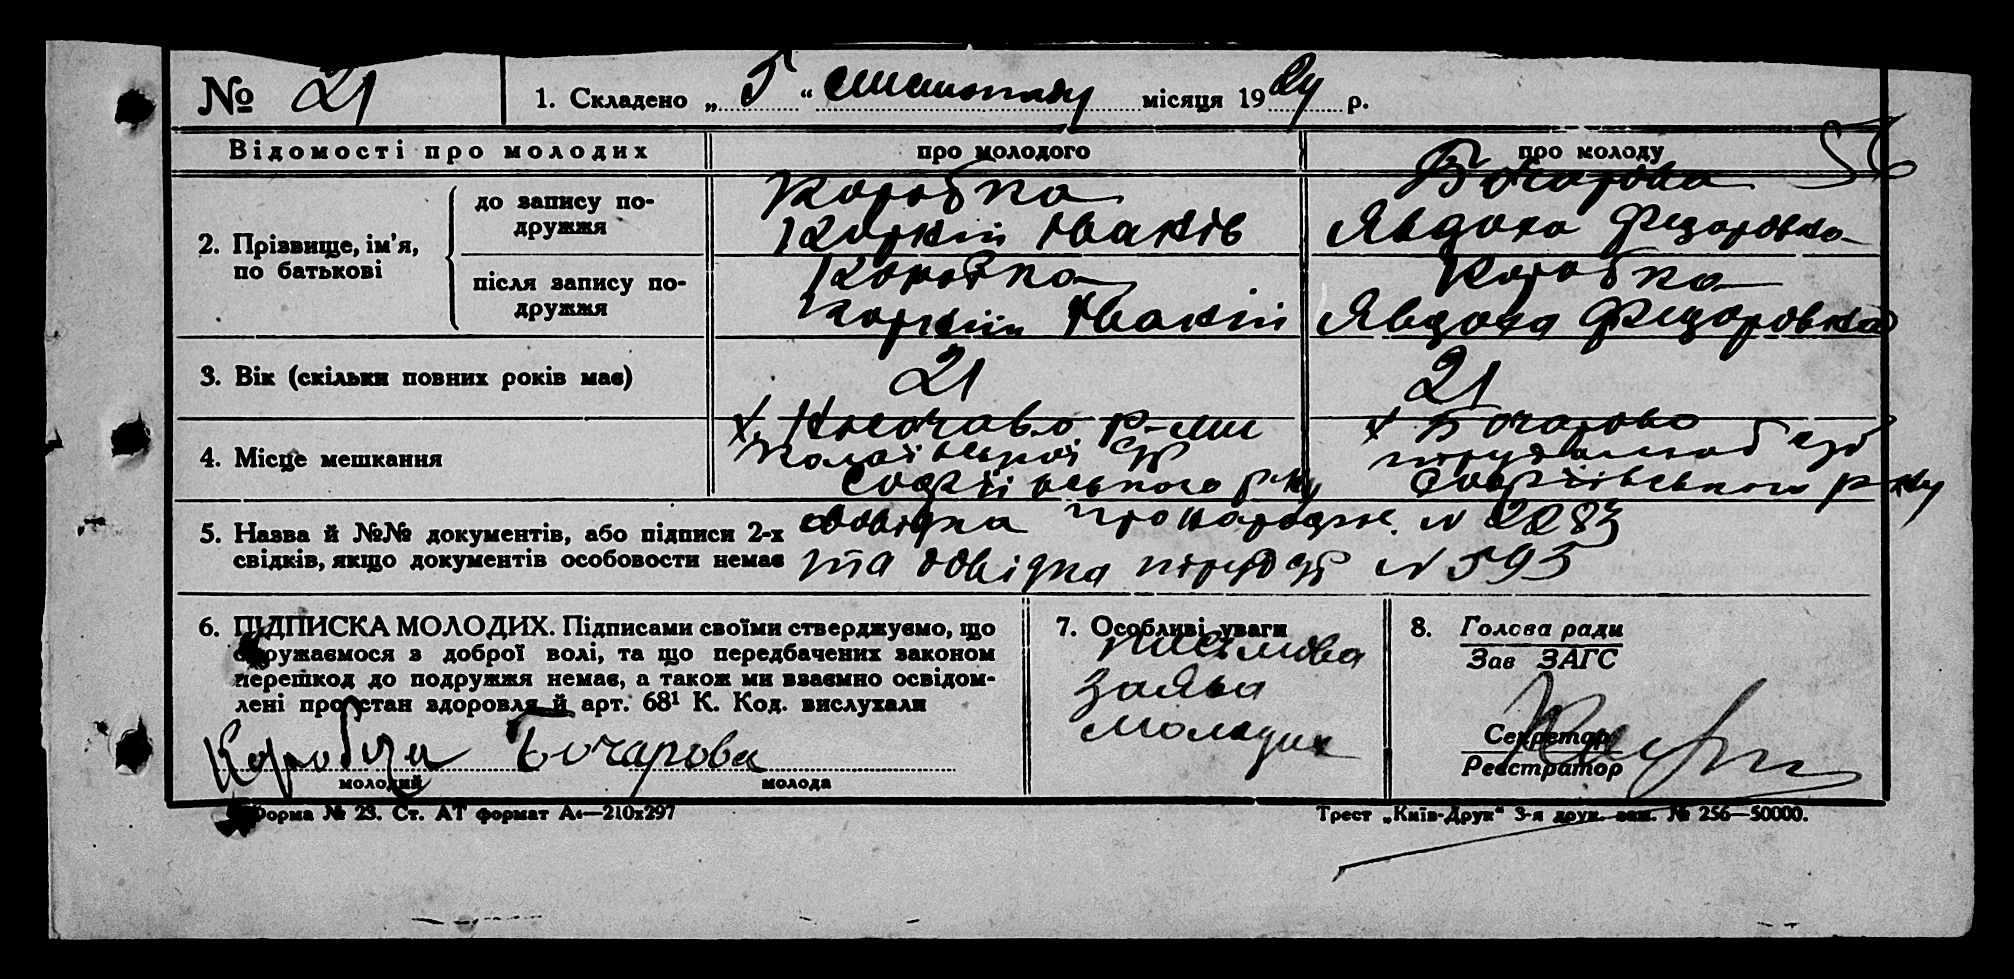 № 21
1. Складено „ 5 “ листопаду місяця 19 р.
56
Відомості про молодих
про молодого
про молоду
2. Прізвище, ім'я, по батькові
до запису подружжя
Коробка
Бочарова
Явдоха Федоровна
після запису подружжя
Коробка
Коробка
Явдоха Федоровна
3. Вік (скільки повних років має)
21
21
4. Місце мешкання
х.
Софіївського р-ну
х Бочарово
Софіївського р-ну
5. Назва й №№ документів, або підписи 2-х
свідків, якщо документів особовости немає
довідка про народжен. N 2283
та довідка N 593
6. ПІДПИСКА МОЛОДИХ. Підписами своїми стверджуємо, що
одружаємося з доброї волі, та що передбачених законом
перешкод до подружжя немає, а також ми взаємно освідом-
лені про стан здоровля й арт. 68¹ К. Код. вислухали
Коробка Бочарова
молодий
молода
7. Особливі уваги
письмова
заява
молодих
8. Голова ради
Зав ЗАГС
Секретар
Реєстратор
Форма № 23. Ст. АТ формат А4—210х297
Трест „Київ-Друк“ 3-я друк. зам. № 256—50000.